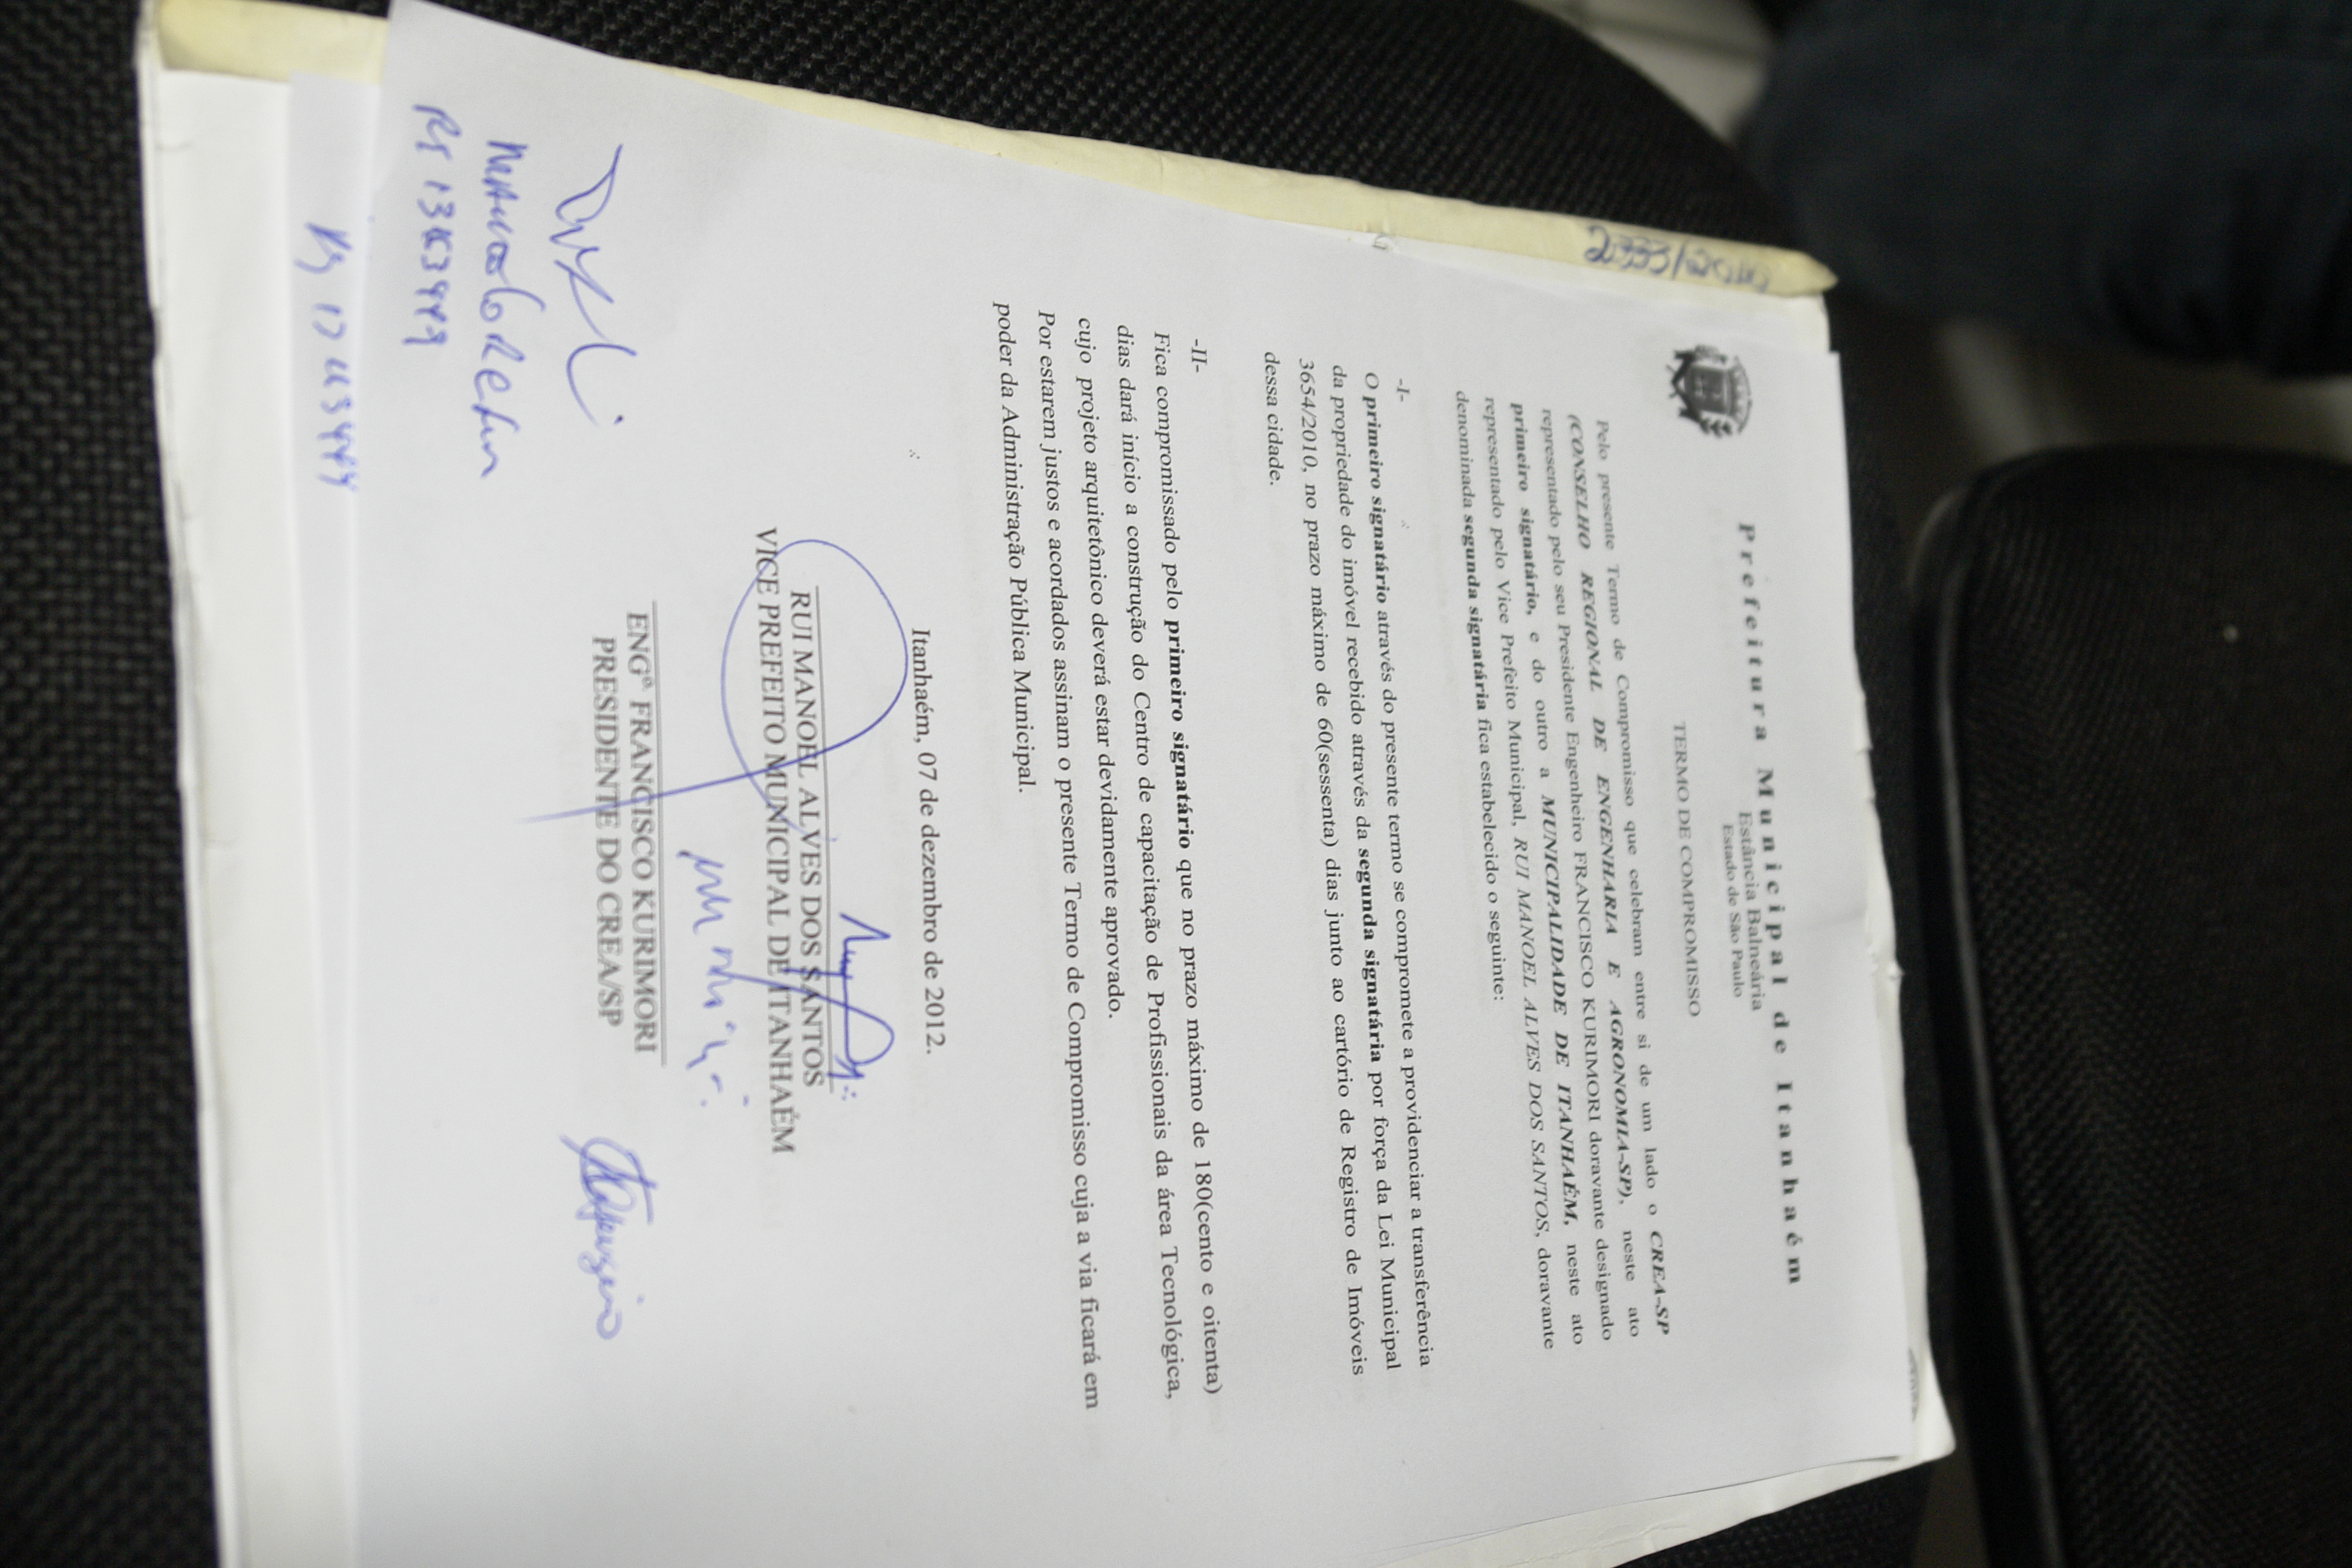 2333/2010
Prefeitura Municipal de Itanhaém
Estância Balneária
Estado de São Paulo
TERMO DE COMPROMISSO
Pelo presente Termo de Compromisso que celebram entre si de um lado o CREA-SP
(CONSELHO REGIONAL DE ENGENHARIA E AGRONOMIA-SP), neste ato
representado pelo seu Presidente Engenheiro FRANCISCO KURIMORI doravante designado
primeiro signatário, e do outro a MUNICIPALIDADE DE ITANHAÉM, neste ato
representado pelo Vice Prefeito Municipal, RUI MANOEL ALVES DOS SANTOS, doravante
denominada segunda signatária fica estabelecido o seguinte:
-I-
O primeiro signatário através do presente termo se compromete a providenciar a transferência
da propriedade do imóvel recebido através da segunda signatária por força da Lei Municipal
3654/2010, no prazo máximo de 60(sessenta) dias junto ao cartório de Registro de Imóveis
dessa cidade.
-II-
Fica compromissado pelo primeiro signatário que no prazo máximo de 180(cento e oitenta)
dias dará início a construção do Centro de capacitação de Profissionais da área Tecnológica,
cujo projeto arquitetônico deverá estar devidamente aprovado.
Por estarem justos e acordados assinam o presente Termo de Compromisso cuja a via ficará em
poder da Administração Pública Municipal.
Itanhaém, 07 de dezembro de 2012.
RUI MANOEL ALVES DOS SANTOS
VICE PREFEITO MUNICIPAL DE ITANHAÉM
ENGº FRANCISCO KURIMORI
PRESIDENTE DO CREA/SP